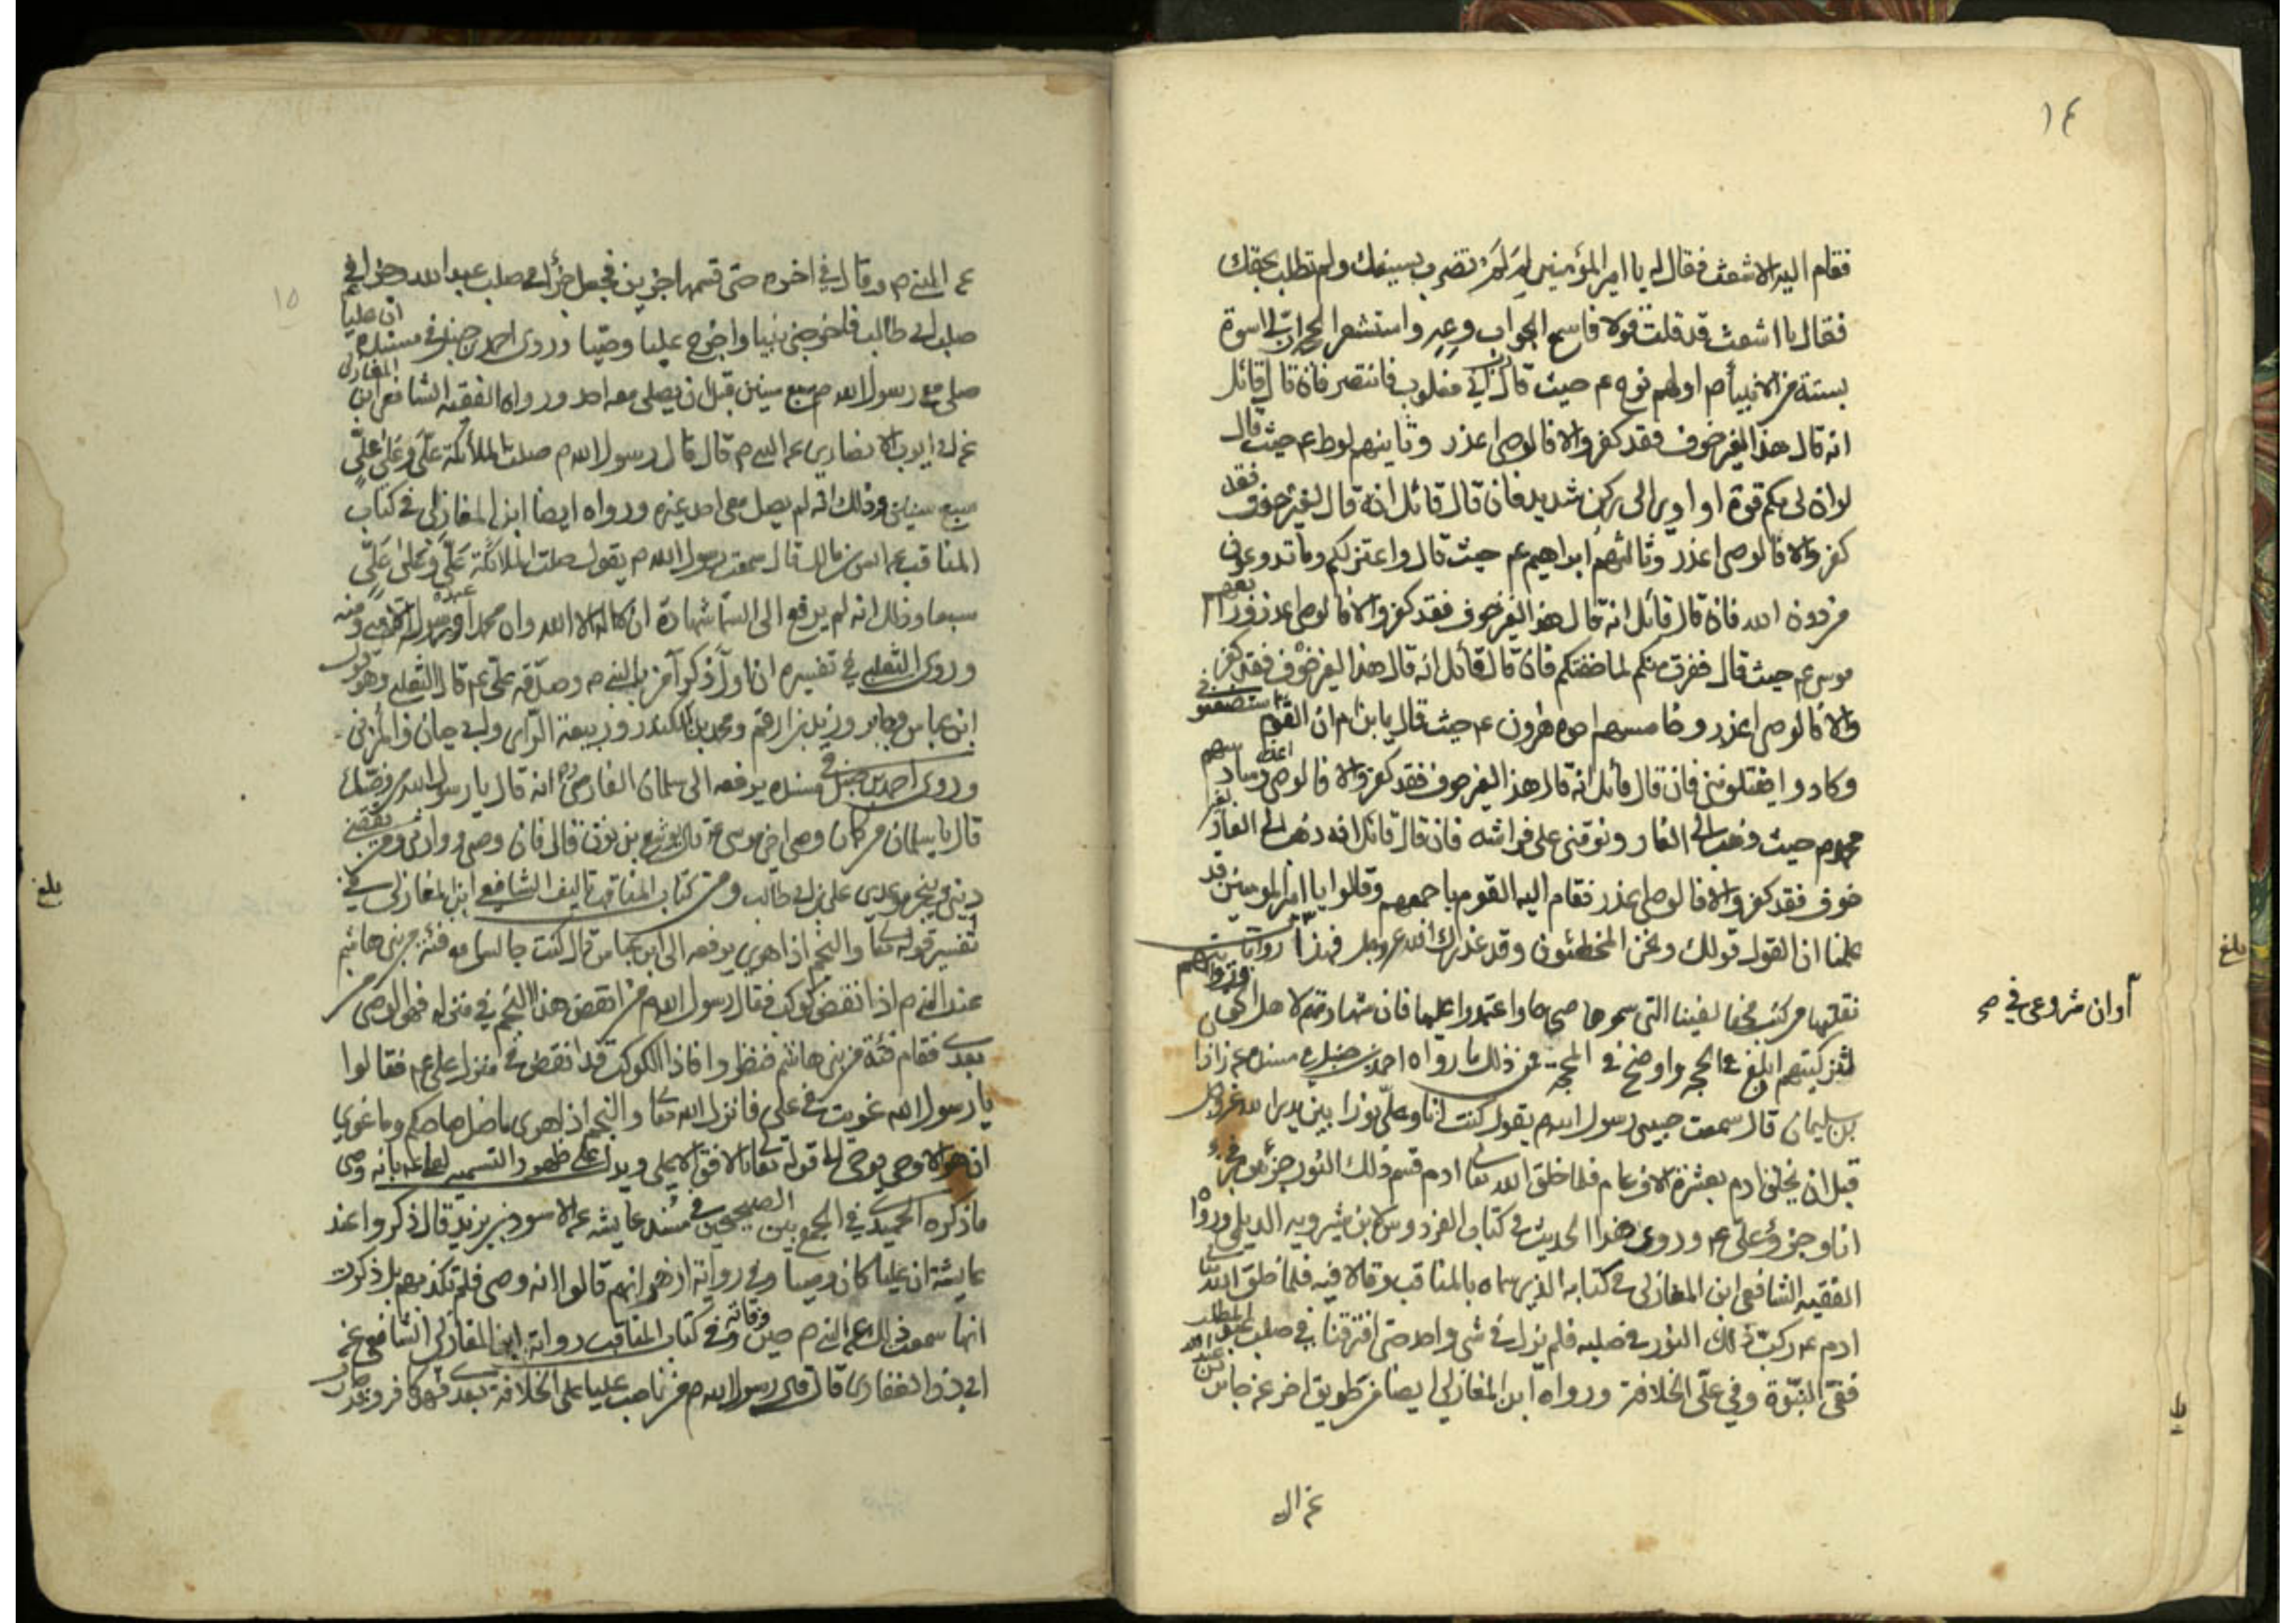 ١٤
فقام اليه الاشعث فقال له يا امير المؤمنين لِمَ لَمْ تضرب بسيفك ولم تطلب بحقك
فقال يا اشعث قد قلت قولا فاسمع الجواب وعِهِ واستشعر الحجة ان لى اسوة
بستة من الانبياء م اولهم نوح ع م حيث قال رب انى مغلوب فانتصر فان قال قائل
انه قال هذا لغير خوف فقد كفر والا فالوصى اعذر وثانيهم لوط ع م حيث قال
لو ان لى بكم قوة او اوى الى ركن شديد فان قال قائل انه قال لغير خوف فقد
كفر والا فالوصى اعذر وثالثهم ابراهيم ع م حيث قال واعتزلكم وما تدعون
من دون الله فان قال قائل انه قال هذا لغير خوف فقد كفر والا فالوصى اعذر ورابعهم
موسى ع م حيث قال ففرت منكم لما خفتكم فان قال قائل انه قال هذا لغير خوف فقد كفر
والا فالوصى اعذر وخامسهم اخوه هرون ع م حيث قال يا بن ام ان القوم استضعفونى
وكادوا يقتلوننى فان قال قائل انه قال هذا لغير خوف فقد كفر والا فالوصى اعذر وسادسهم
محمد م حيث ذهب الى الغار ونومنى على فراشه فان قال قائل انه ذهب الى الغار لغير
خوف فقد كفر والا فالوصى اعذر فقام اليه القوم باجمعهم وقالوا يا امير المومنين قد
علمنا ان القول قولك ونحن المخطئون وقد عذرك الله عز وجل فهذا روايات
نقلتها من كتب مخالفينا التى سموها صحاحا واعتمدوا عليها فان شهادتهم لاهل الحق
من كتبهم ابلغ فى الحجة واوضح فى المحجة فمن ذلك ما رواه احمد بن حنبل فى مسنده عن زاذان
بن سليمان قال سمعت حبيبى رسول الله م يقول كنت انا وعلى نورا بين يدى الله عز وجل
قبل ان يخلق ادم بعشرة الاف عام فلما خلق الله تعا ادم قسم ذلك النور جزئين فجزء
انا وجزؤ على ع م وروى هذا الحديث فى كتاب الفردوس لابن شيرويه الديلمى ورواه
الفقيه الشافعى ابن المغازلى فى كتابه الذى سماه بالمناقب وقالا فيه فلما خلق الله تعا
ادم ع م ركب ذلك النور فى صلبه فلم نزل فى شى واحد حتى افترقنا فى صلب عبد المطلب
ففى النبوة وفى على الخلافة ورواه ابن المغازلى ايضا من طريق اخر عن جابر بن عبد الله
عن ال
آوان شروعى فى
بلغ
١٥
عن النبى م وقال فى اخره حتى قسمها جزئين فجعل جزأ فى صلب عبد الله وجزأ فى
صلب ابى طالب فاخرجنى نبيا واخرج عليا وصيا وروى احمد بن حنبل فى مسنده ان عليا
صلى مع رسول الله م سبع سنين قبل ان يصلى معه احد ورواه الفقيه الشافعى ابن المغازلى
عن ابى ايوب الانصارى عن النبى م قال قال رسول الله م صلت الملائكة عَلَىَّ وَعَلى عَلىٍّ
سبع سنين وذلك انه لم يصل معى احد غيره ورواه ايضا ابن المغازلى فى كتاب
المناقب عن انس بن مالك قال سمعت رسول الله م يقول صلت الملائكة عَلَىَّ وَعَلى عَلىٍّ
سبعا وذلك انه لم يرفع الى السما شهادة ان لا اله الا الله وان محمدا عبده ورسوله الا منى ومنه
وروى الثعلبى فى تفسيره ان اول ذكر آمن بالنبى م وصدقه على ع م قال الثعلبى وهو قول
ابن عباس وجابر وزيد بن ارقم ومحمد بن المنكدر وربيعة الراى وابى حيان والمزنى
وروى احمد بن حنبل فى مسنده يرفعه الى سلمان الفارسى انه قال يا رسول الله من وصيك
قال يا سلمان من كان وصى اخى موسى ع م قال يوشع بن نون قال فان وصى ووارثى ومن يقضى
دينى وينجز موعدى على بن ابى طالب ومن كتاب المناقب تاليف الشافعى ابن المغازلى فى
تفسير قوله تعا والنجم اذا هوى يرفعه الى ابن عباس قال كنت جالسا مع فئة من بنى هاشم
عند النبى م اذا نقض كوكب فقال رسول الله م من انقض هذا النجم فى منزله فهو الوصى من
بعدى فقام فئة من بنى هاشم فنظروا فاذا الكوكب قد انقض فى منزل على ع م فقالوا
يا رسول الله غويت فى على فانزل الله تعا والنجم اذا هوى ما ضل صاحبكم وما غوى
ان هو الا وحى يوحى الى قوله تعا بالافق الاعلى ويدل على ظهور التسميه لعلى ع م بانه وصى
ما ذكره الحميدى فى الجمع بين الصحيحين فى مسند عايشه عن الاسود بن يزيد قال ذكروا عند
عايشة ان عليا كان وصيا وفى رواية ازهر انهم قالوا انه وصى فلم تكذبهم بل ذكرت
انها سمعت ذلك عن النبى م حين وفاته وفى كتاب المناقب رواية ابن المغازلى الشافعى عن
ابى ذر الغفارى قال قال رسول الله م من ناصب عليا على الخلافة بعدى فهو كافر وقد حارب
بلغ